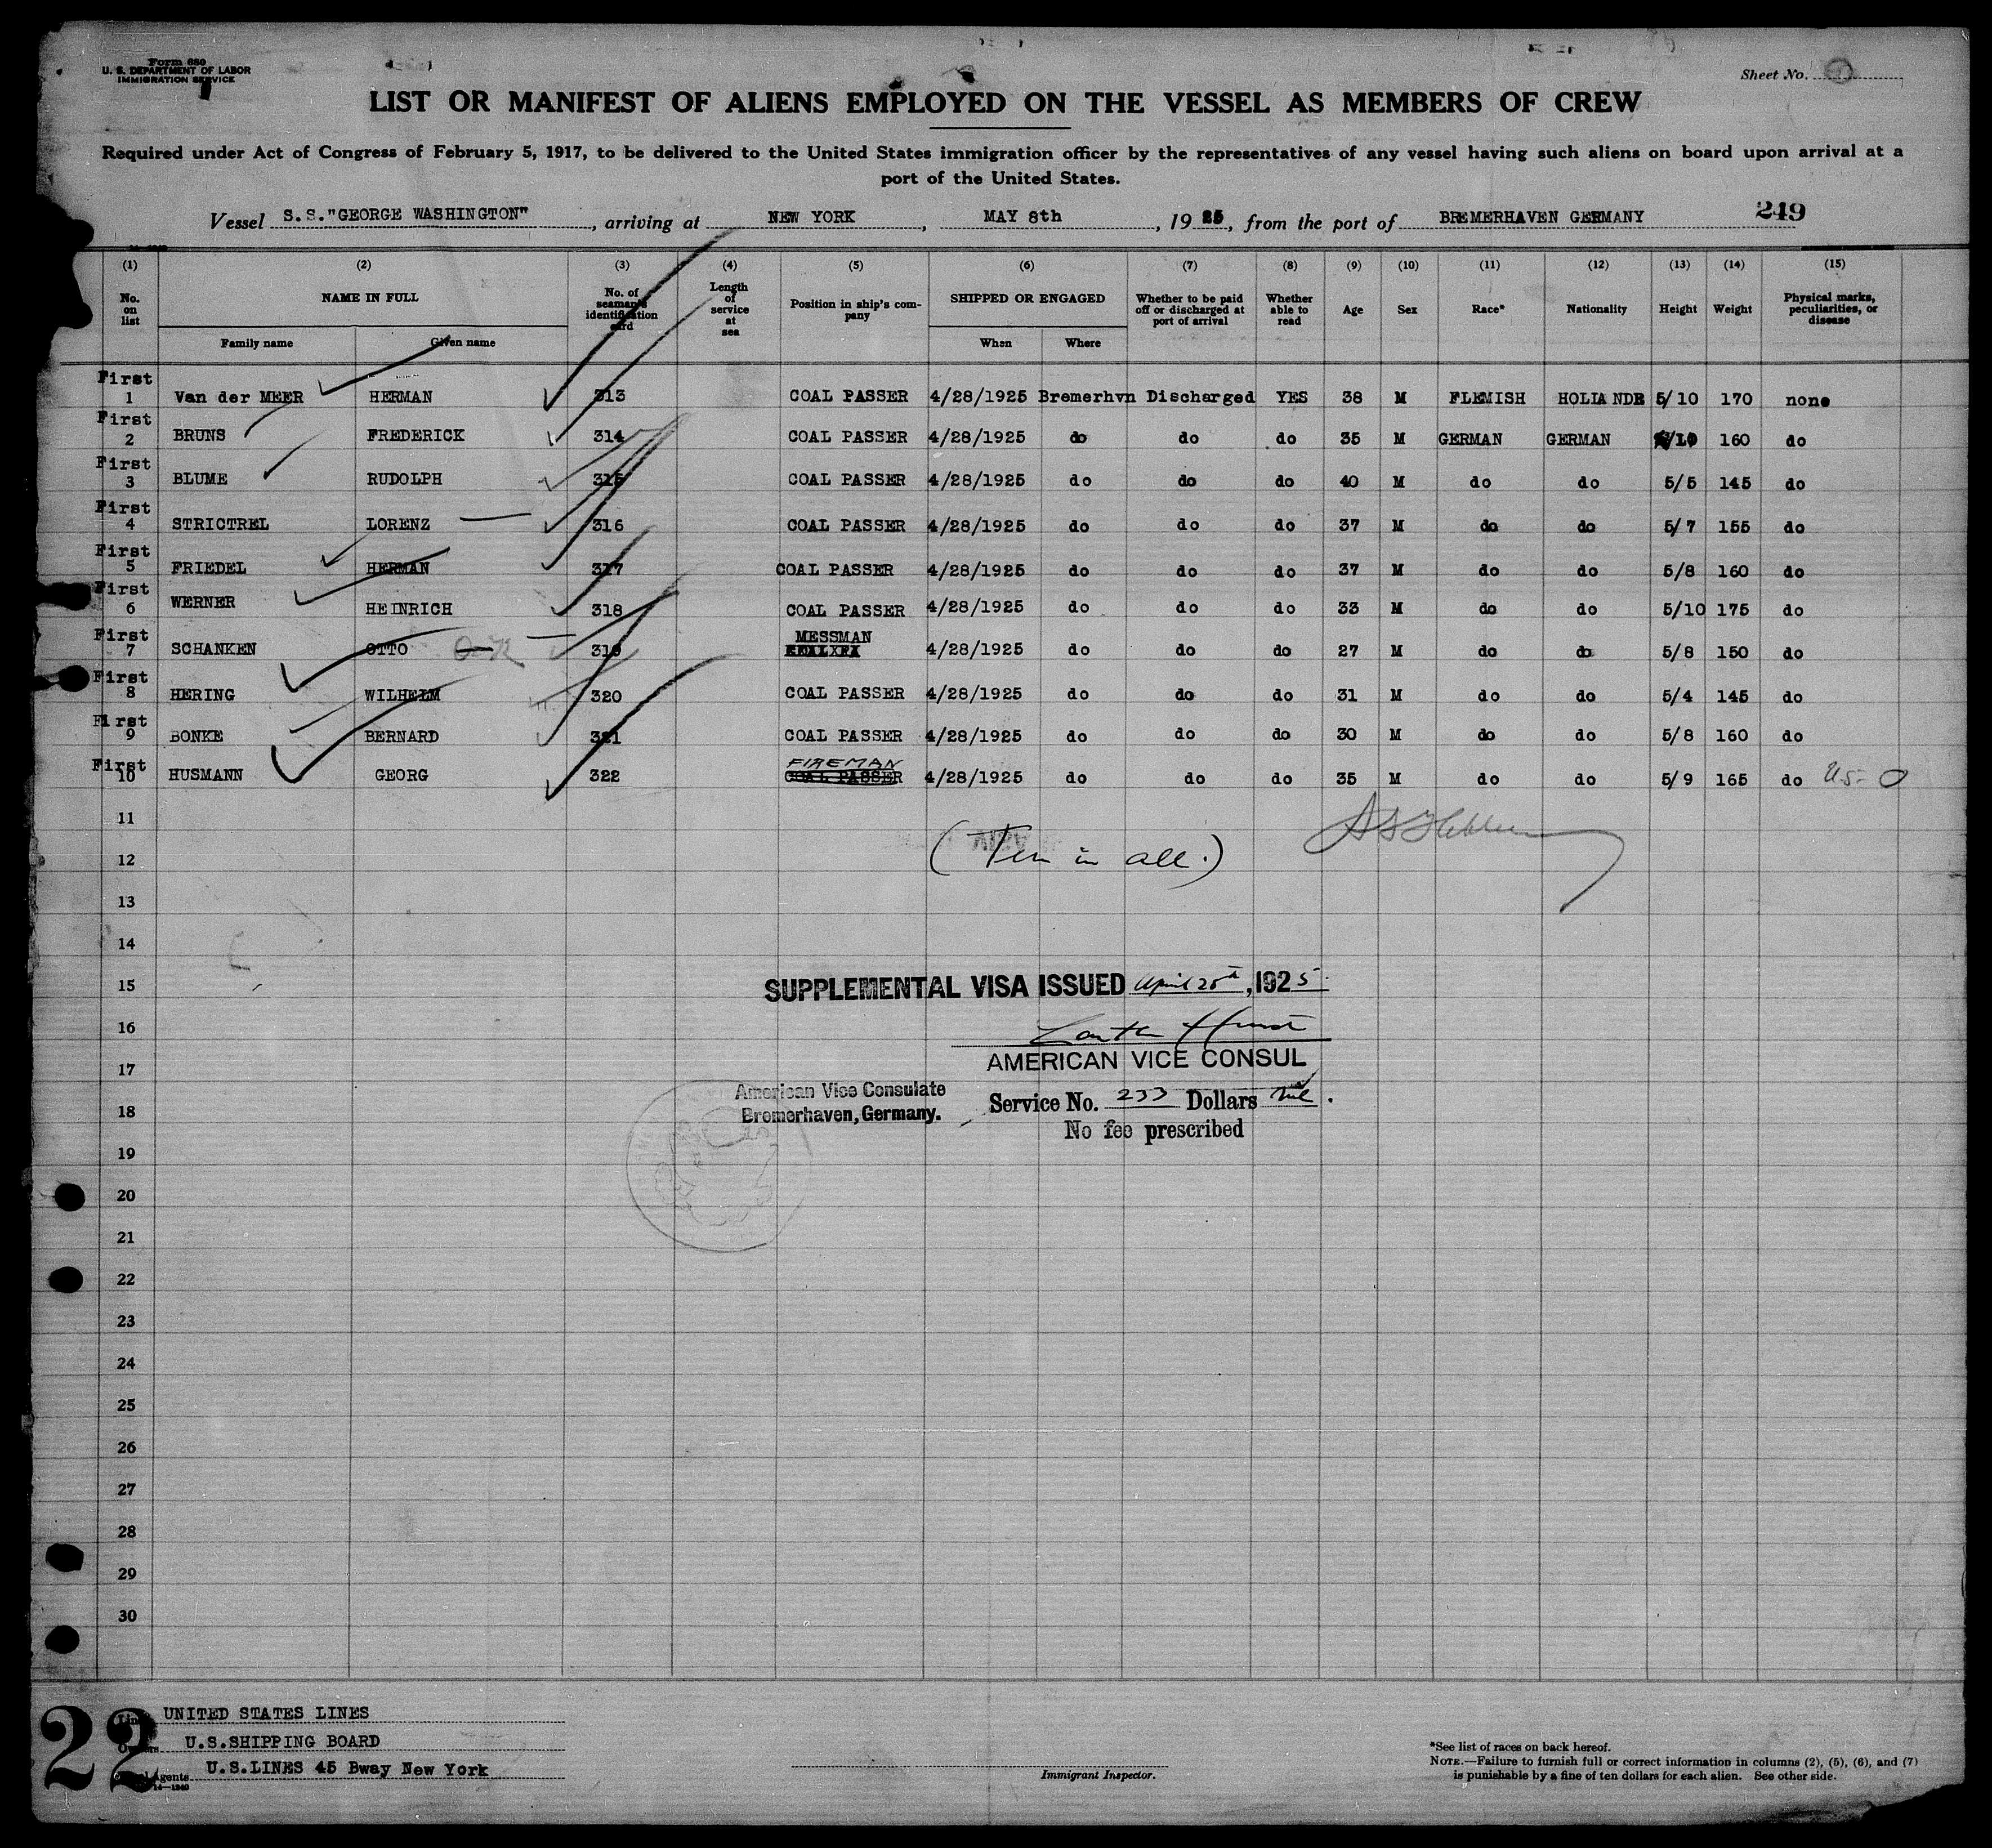 Form 680
U. S. DEPARTMENT OF LABOR
IMMIGRATION SERVICE
Sheet No.
LIST OR MANIFEST OF ALIENS EMPLOYED ON THE VESSEL AS MEMBERS OF CREW
Required under Act of Congress of February 5, 1917, to be delivered to the United States immigration officer by the representatives of any vessel having such aliens on board upon arrival at a
port of the United States.
Vessel S.S."GEORGE WASHINGTON", arriving at NEW YORK, MAY 8th, 19 25, from the port of BREMERHAVEN GERMANY 249
(1) (2) (3) (4) (5) (6) (7) (8) (9) (10) (11) (12) (13) (14) (15)
No. on list NAME IN FULL No. of seaman's identification card Length of service at sea Position in ship's company SHIPPED OR ENGAGED Whether to be paid off or discharged at port of arrival Whether able to read Age Sex Race* Nationality Height Weight Physical marks, peculiarities, or disease
Family name Given name When Where
First 1 Van der MEER HERMAN 313 COAL PASSER 4/28/1925 Bremerhvn Discharged YES 38 M FLEMISH HOLLANDR 5/10 170 none
First 2 BRUNS FREDERICK 314 COAL PASSER 4/28/1925 do do do 35 M GERMAN GERMAN 5/10 160 do
First 3 BLUME RUDOLPH 315 COAL PASSER 4/28/1925 do do do 40 M do do 5/5 145 do
First 4 STRICTREL LORENZ 316 COAL PASSER 4/28/1925 do do do 37 M do do 5/7 155 do
First 5 FRIEDEL HERMAN 317 COAL PASSER 4/28/1925 do do do 37 M do do 5/8 160 do
First 6 WERNER HEINRICH 318 COAL PASSER 4/28/1925 do do do 33 M do do 5/10 175 do
First 7 SCHANKEN OTTO 319 MESSMAN 4/28/1925 do do do 27 M do do 5/8 150 do
First 8 HERING WILHELM 320 COAL PASSER 4/28/1925 do do do 31 M do do 5/4 145 do
First 9 BONKE BERNARD 321 COAL PASSER 4/28/1925 do do do 30 M do do 5/8 160 do
First 10 HUSMANN GEORG 322 FIREMAN COAL PASSER 4/28/1925 do do do 35 M do do 5/9 165 do U.S.- O
11
(Ten in all.)
12
13
14
15 SUPPLEMENTAL VISA ISSUED April 28th, 1925.
16
17 AMERICAN VICE CONSUL
American Vice Consulate Service No. 233 Dollars nil.
18 Bremerhaven, Germany.
No fee prescribed
19
20
21
22
23
24
25
26
27
28
29
30
22
Line UNITED STATES LINES
Owners U.S.SHIPPING BOARD
Agents U.S.LINES 45 Bway New York
Immigrant Inspector.
*See list of races on back hereof.
NOTE.—Failure to furnish full or correct information in columns (2), (5), (6), and (7)
is punishable by a fine of ten dollars for each alien. See other side.